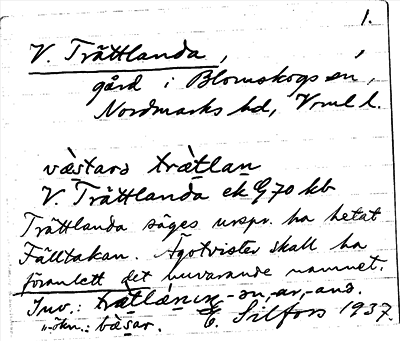 1.
V. Trättlanda,
gård i Blomskogs sn,
Nordmarks hd, Vrml l.
væstars trætlan
V. Trättlanda ek G. 70 kb
Trättlanda säges urspr. ha hetat
Fälltakan. Ägotvister skall ha
föranlett det nuvarande namnet.
Inv.: trætlæning, -ən, -ar, -ana.
"-ökn.: bæsar. E. Silfors 1937.